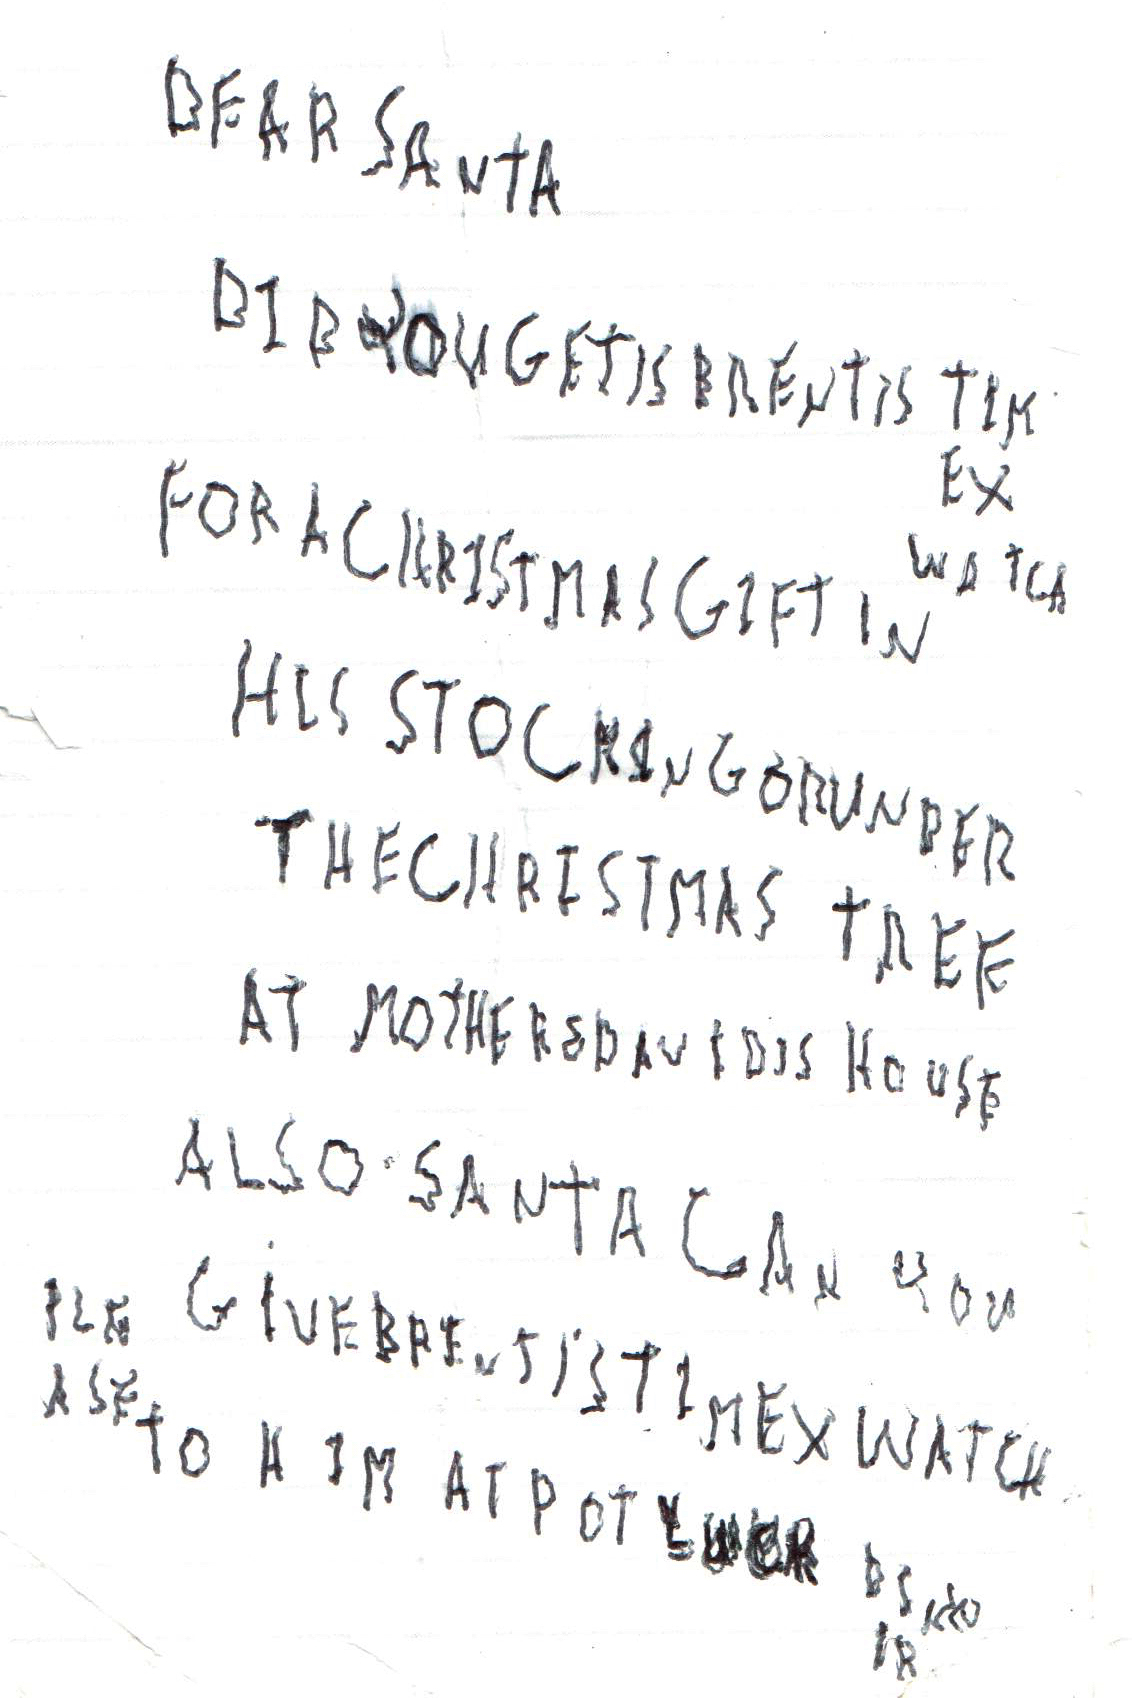 DEAR SANTA
DID YOU GET IS BRENT IS TIM
EX
WATCH
FOR A CHRISTMAS GIFT IN
HIS STOCKING OR UNDER
THE CHRISTMAS TREE
AT MOTHER & DAVIDIS HOUSE
ALSO SANTA CAN YOU
PLE GIVE BRENT IS TIMEX WATCH
ASE TO HIM AT POT